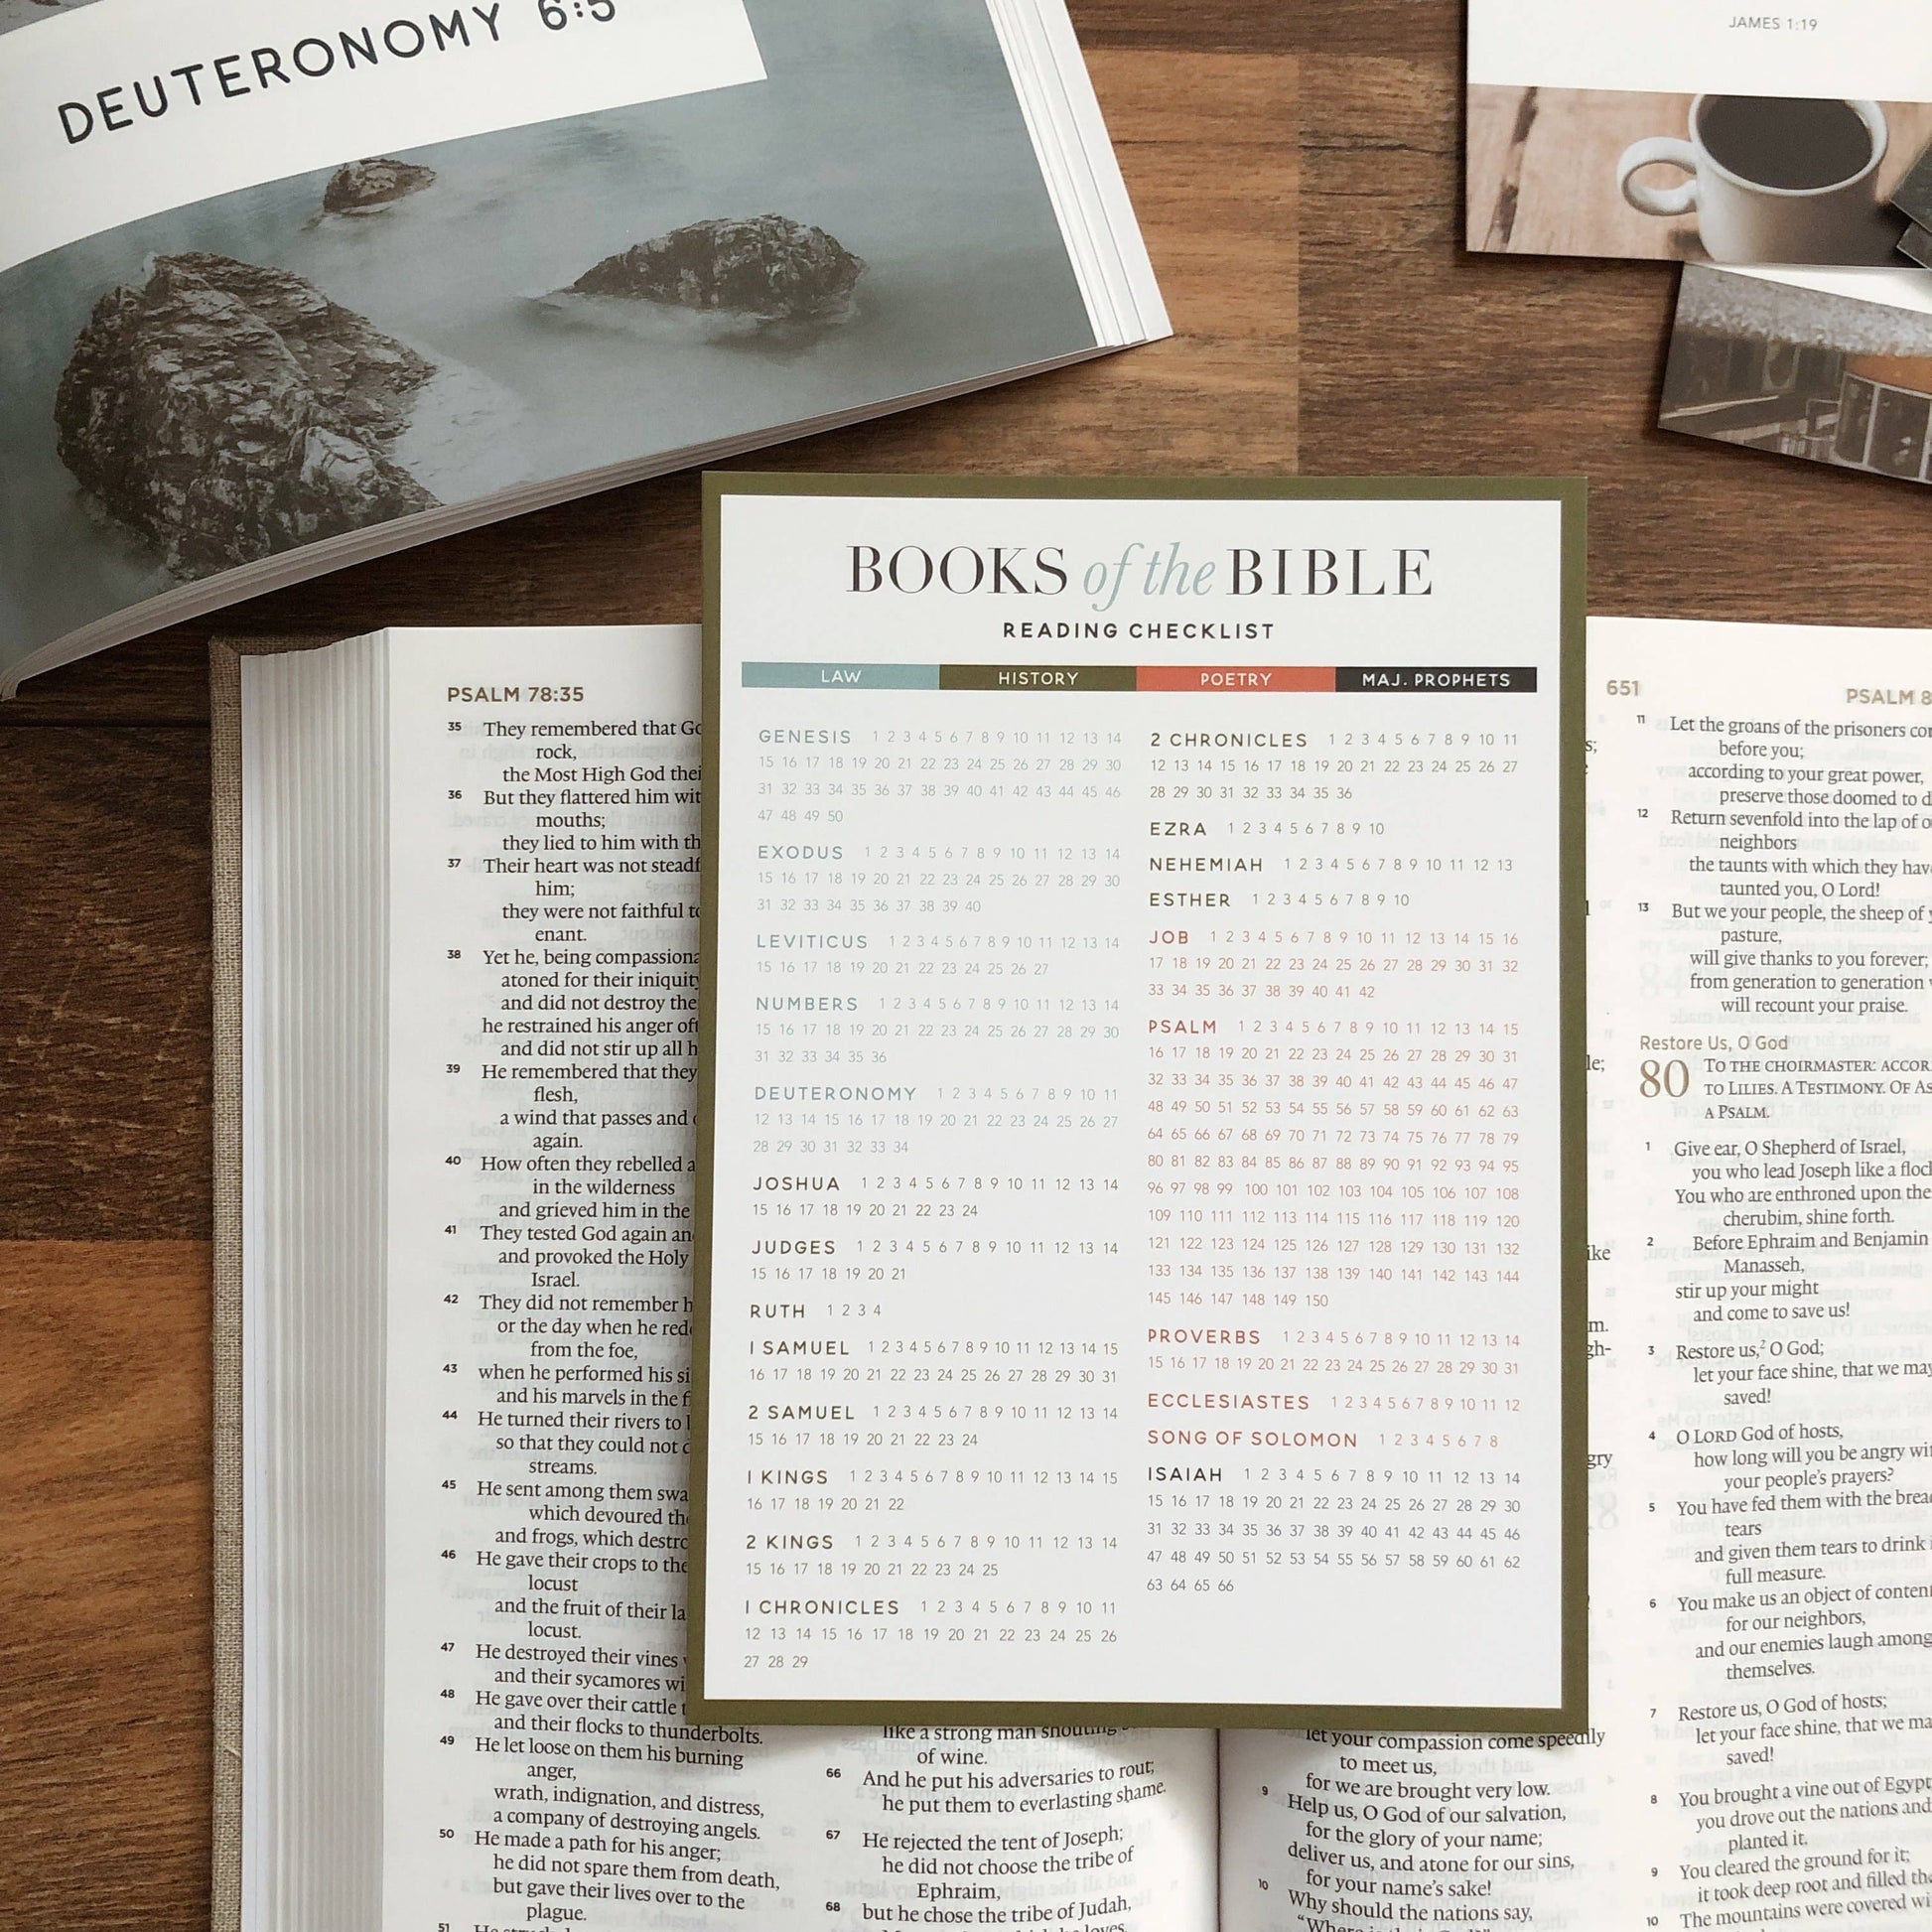 DEUTERONOMY 6:5
JAMES 1:19
BOOKS of the BIBLE
READING CHECKLIST
LAW HISTORY POETRY MAJ. PROPHETS
GENESIS 1 2 3 4 5 6 7 8 9 10 11 12 13 14
15 16 17 18 19 20 21 22 23 24 25 26 27 28 29 30
31 32 33 34 35 36 37 38 39 40 41 42 43 44 45 46
47 48 49 50
EXODUS 1 2 3 4 5 6 7 8 9 10 11 12 13 14
15 16 17 18 19 20 21 22 23 24 25 26 27 28 29 30
31 32 33 34 35 36 37 38 39 40
LEVITICUS 1 2 3 4 5 6 7 8 9 10 11 12 13 14
15 16 17 18 19 20 21 22 23 24 25 26 27
NUMBERS 1 2 3 4 5 6 7 8 9 10 11 12 13 14
15 16 17 18 19 20 21 22 23 24 25 26 27 28 29 30
31 32 33 34 35 36
DEUTERONOMY 1 2 3 4 5 6 7 8 9 10 11
12 13 14 15 16 17 18 19 20 21 22 23 24 25 26 27
28 29 30 31 32 33 34
JOSHUA 1 2 3 4 5 6 7 8 9 10 11 12 13 14
15 16 17 18 19 20 21 22 23 24
JUDGES 1 2 3 4 5 6 7 8 9 10 11 12 13 14
15 16 17 18 19 20 21
RUTH 1 2 3 4
1 SAMUEL 1 2 3 4 5 6 7 8 9 10 11 12 13 14 15
16 17 18 19 20 21 22 23 24 25 26 27 28 29 30 31
2 SAMUEL 1 2 3 4 5 6 7 8 9 10 11 12 13 14
15 16 17 18 19 20 21 22 23 24
1 KINGS 1 2 3 4 5 6 7 8 9 10 11 12 13 14 15
16 17 18 19 20 21 22
2 KINGS 1 2 3 4 5 6 7 8 9 10 11 12 13 14
15 16 17 18 19 20 21 22 23 24 25
1 CHRONICLES 1 2 3 4 5 6 7 8 9 10 11
12 13 14 15 16 17 18 19 20 21 22 23 24 25 26
27 28 29
2 CHRONICLES 1 2 3 4 5 6 7 8 9 10 11
12 13 14 15 16 17 18 19 20 21 22 23 24 25 26 27
28 29 30 31 32 33 34 35 36
EZRA 1 2 3 4 5 6 7 8 9 10
NEHEMIAH 1 2 3 4 5 6 7 8 9 10 11 12 13
ESTHER 1 2 3 4 5 6 7 8 9 10
JOB 1 2 3 4 5 6 7 8 9 10 11 12 13 14 15 16
17 18 19 20 21 22 23 24 25 26 27 28 29 30 31 32
33 34 35 36 37 38 39 40 41 42
PSALM 1 2 3 4 5 6 7 8 9 10 11 12 13 14 15
16 17 18 19 20 21 22 23 24 25 26 27 28 29 30 31
32 33 34 35 36 37 38 39 40 41 42 43 44 45 46 47
48 49 50 51 52 53 54 55 56 57 58 59 60 61 62 63
64 65 66 67 68 69 70 71 72 73 74 75 76 77 78 79
80 81 82 83 84 85 86 87 88 89 90 91 92 93 94 95
96 97 98 99 100 101 102 103 104 105 106 107 108
109 110 111 112 113 114 115 116 117 118 119 120
121 122 123 124 125 126 127 128 129 130 131 132
133 134 135 136 137 138 139 140 141 142 143 144
145 146 147 148 149 150
PROVERBS 1 2 3 4 5 6 7 8 9 10 11 12 13 14
15 16 17 18 19 20 21 22 23 24 25 26 27 28 29 30 31
ECCLESIASTES 1 2 3 4 5 6 7 8 9 10 11 12
SONG OF SOLOMON 1 2 3 4 5 6 7 8
ISAIAH 1 2 3 4 5 6 7 8 9 10 11 12 13 14
15 16 17 18 19 20 21 22 23 24 25 26 27 28 29 30
31 32 33 34 35 36 37 38 39 40 41 42 43 44 45 46
47 48 49 50 51 52 53 54 55 56 57 58 59 60 61 62
63 64 65 66
PSALM 78:35
35 They remembered that
rock,
the Most High God
36 But they flattered him
mouths;
they lied to him with
37 Their heart was not
him;
they were not faithful
enant.
38 Yet he, being
atoned for their iniquity
and did not destroy
he restrained his anger
and did not stir up all
39 He remembered that they
flesh,
a wind that passes and
again.
40 How often they rebelled
in the wilderness
and grieved him in the
41 They tested God again
and provoked the Holy
Israel.
42 They did not remember
or the day when he
from the foe,
43 when he performed his
and his marvels in the
44 He turned their rivers to
so that they could not
streams.
45 He sent among them
which devoured
and frogs, which
46 He gave their crops to the
locust
and the fruit of their
locust.
47 He destroyed their vines
and their sycamores
48 He gave over their cattle
and their flocks to thunderbolts.
49 He let loose on them his burning
anger,
wrath, indignation, and distress,
a company of destroying angels.
50 He made a path for his anger;
he did not spare them from death,
but gave their lives over to the
plague.
51
like a strong man shouting
of wine.
66 And he put his adversaries to rout;
he put them to everlasting shame.
67 He rejected the tent of Joseph;
he did not choose the tribe of
Ephraim,
68 but he chose the tribe of Judah,
let your compassion come speedily
to meet us,
for we are brought very low.
9 Help us, O God of our salvation,
for the glory of your name;
deliver us, and atone for our sins,
for your name's sake!
10 Why should the nations say,
651 PSALM
11 Let the groans of the prisoners
before you;
according to your great power,
preserve those doomed to
12 Return sevenfold into the lap of
neighbors
the taunts with which they
taunted you, O Lord!
13 But we your people, the sheep of
pasture,
will give thanks to you forever;
from generation to generation
will recount your praise.
Restore Us, O God
80 TO THE CHOIRMASTER:
TO LILIES. A TESTIMONY. OF
A PSALM.
1 Give ear, O Shepherd of Israel,
you who lead Joseph like a
You who are enthroned upon the
cherubim, shine forth.
2 Before Ephraim and Benjamin
Manasseh,
stir up your might
and come to save us!
3 Restore us,2 O God;
let your face shine, that we may
saved!
4 O LORD God of hosts,
how long will you be angry
your people's prayers?
5 You have fed them with the
tears
and given them tears to drink
full measure.
6 You make us an object of
for our neighbors,
and our enemies laugh among
themselves.
7 Restore us, O God of hosts;
let your face shine, that we
saved!
8 You brought a vine out of Egypt
you drove out the nations and
planted it.
9 You cleared the ground for it;
it took deep root and filled
10 The mountains were covered